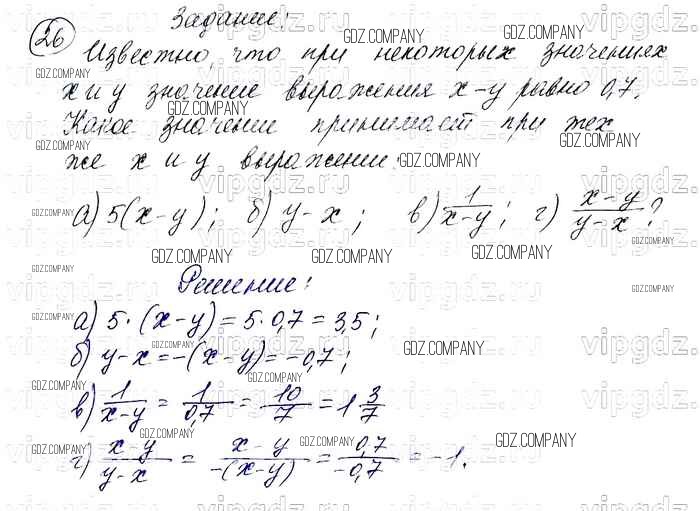 26
Задание:
Известно, что при некоторых значениях
x и y значение выражения x-y равно 0,7.
Какое значение принимает при тех
же x и y выражение:
а) 5(x-y); б) y-x; в) 1/(x-y); г) (x-y)/(y-x)?
Решение:
а) 5·(x-y)=5·0,7=3,5;
б) y-x=-(x-y)=-0,7;
в) 1/(x-y) = 1/0,7 = 10/7 = 1 3/7
г) (x-y)/(y-x) = (x-y)/(-(x-y)) = 0,7/(-0,7) = -1.
GDZ.COMPANY
vipgdz.ru